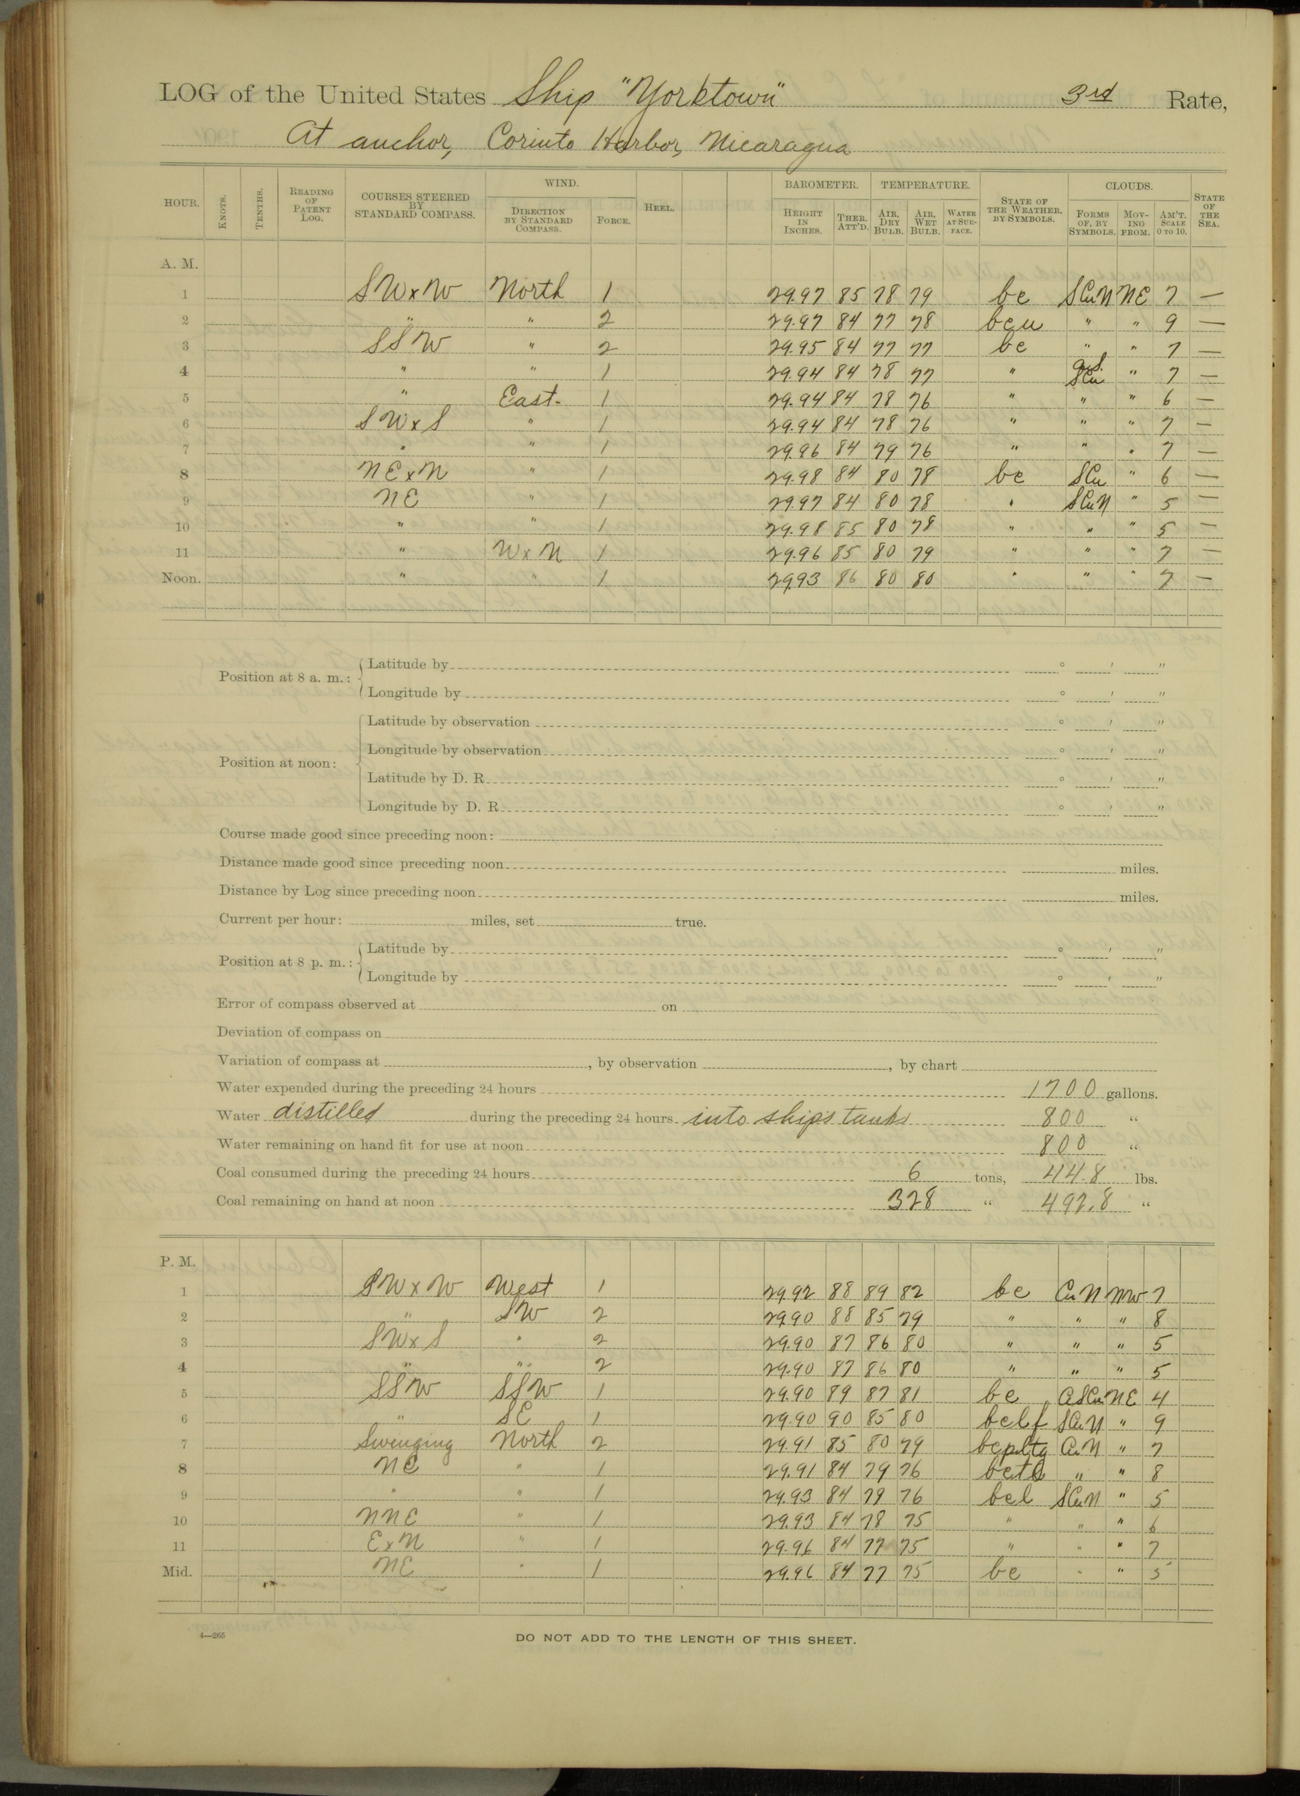 LOG of the United States Ship "Yorktown" 3rd Rate,
At anchor, Corinto Harbor, Nicaragua
HOUR. KNOTS. TENTHS. READING OF PATENT LOG. COURSES STEERED BY STANDARD COMPASS. WIND. DIRECTION BY STANDARD COMPASS. FORCE. HEEL. BAROMETER. HEIGHT IN INCHES. THER. ATT'D. TEMPERATURE. AIR, DRY BULB. AIR, WET BULB. WATER AT SURFACE. STATE OF THE WEATHER, BY SYMBOLS. CLOUDS. FORMS OF, BY SYMBOLS. MOVING FROM. AM'T. SCALE 0 TO 10. STATE OF THE SEA.
A. M.
1 SWxW North 1 29.97 85 78 79 bc SCuN NE 7 —
2 " " 2 29.97 84 77 78 bcu " " 9 —
3 SSW " 2 29.95 84 77 77 bc " " 7 —
4 " " 1 29.94 84 78 77 " SCu " 7 —
5 " East. 1 29.94 84 78 76 " " " 6 —
6 SWxS " 1 29.94 84 78 76 " " " 7 —
7 " " 1 29.96 84 79 76 " " " 7 —
8 NExN " 1 29.98 84 80 78 bc SCu " 6 —
9 NE " 1 29.97 84 80 78 " SCuN " 5 —
10 " " 1 29.98 85 80 78 " " " 5 —
11 " WxN 1 29.96 85 80 79 " " " 7 —
Noon. " " 1 29.93 86 80 80 " " " 7 —
Position at 8 a. m.: Latitude by ° ' "
Longitude by ° ' "
Position at noon: Latitude by observation ° ' "
Longitude by observation ° ' "
Latitude by D. R. ° ' "
Longitude by D. R. ° ' "
Course made good since preceding noon:
Distance made good since preceding noon miles.
Distance by Log since preceding noon miles.
Current per hour: miles, set true.
Position at 8 p. m.: Latitude by ° ' "
Longitude by ° ' "
Error of compass observed at on
Deviation of compass on
Variation of compass at , by observation , by chart
Water expended during the preceding 24 hours 1700 gallons.
Water distilled during the preceding 24 hours into ship's tanks 800 "
Water remaining on hand fit for use at noon 800 "
Coal consumed during the preceding 24 hours 6 tons, 44.8 lbs.
Coal remaining on hand at noon 328 " 492.8 "
P. M.
1 SWxW West 1 29.92 88 89 82 bc CuN NW 7
2 " SW 2 29.90 88 85 79 " " " 8
3 SWxS " 2 29.90 87 86 80 " " " 5
4 " " 2 29.90 87 86 80 " " " 5
5 SSW SSW 1 29.90 89 87 81 bc ASCu NE 4
6 " SE 1 29.90 90 85 80 SCuN " 9
7 Swinging North 2 29.91 85 80 79 CuN " 7
8 NE " 1 29.91 84 79 76 " " 8
9 " " 1 29.93 84 79 76 bcl SCuN " 5
10 NNE " 1 29.93 84 78 75 " " " 6
11 ExN " 1 29.96 84 77 75 " " " 7
Mid. NE " 1 29.96 84 77 75 bc " " 5
4—265
DO NOT ADD TO THE LENGTH OF THIS SHEET.